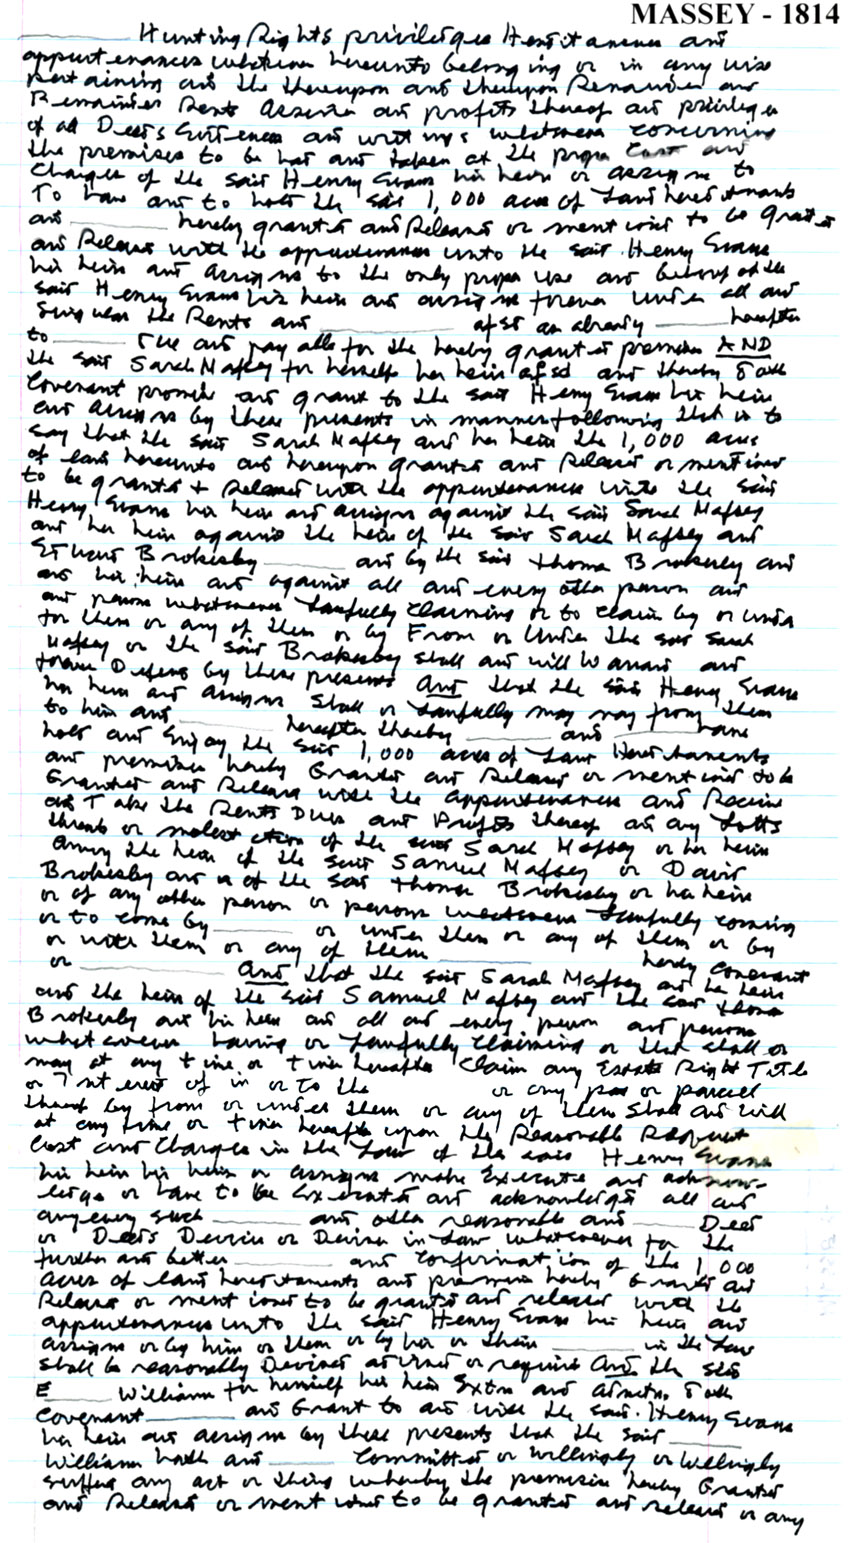 MASSEY - 1814
_____ Hunting Rights priviledges Hereditamence and
appurtenances whatsoever hereunto belonging or in any wise
pertaining and the thereupon and thereupon Remainder and
Remainder Rents and profits thereof and priviledges
of all Deeds and writings whatsoever concerning
the premises to be had and taken at the proper Cost and
Charges of the said Henry Evans his heirs or assigns to
To have and to hold the said 1,000 acres of Land hereditaments
and _____ hereby granted and Released or mentioned to be granted
and Released with the appurtenances unto the said Henry Evans
his heirs and assigns to the only proper use and behoof of the
said Henry Evans his heirs and assigns forever Under all and
Singular the Rents and _____ afsd as already _____ hereafter
to _____ Due and pay able for the hereby granted premises AND
the said Sarah Massey for herself her heirs afsd and thereby Doth
Covenant promise and grant to the said Henry Evans his heirs
and assigns by these presents in manner following that is to
say that the said Sarah Massey and her heirs the 1,000 acres
of land hereunto and hereupon granted and Released or mentioned
to be granted + Released with the appurtenances unto the said
Henry Evans his heirs and assigns against the said Sarah Massey
and her heirs against the heirs of the said Sarah Massey and
Brokesby _____ and by the said Thomas Brokesby and
and his heirs and against all and every other person and
and persons whatsoever Lawfully Claiming or to claim by or under
for them or any of them or by From or Under the said Sarah
Massey or the said Brokesby shall and will Warrant and
forever Defend by these presents And that the said Henry Evans
his heirs and assigns shall or Lawfully may from them
to him and _____ hereafter thereby _____ and _____ have
hold and Enjoy the said 1,000 acres of Land Hereditaments
and premises hereby Granted and Released or mentioned to be
Granted and Released with the appurtenances and Receive
and Take the Rents Dues and Profits thereof and any Lotts
threats or molestation of the said Sarah Massey or her heirs
the heirs of the said Samuel Massey or David
Brokesby and of the said Thomas Brokesby or his heirs
or of any other person or persons whatsoever Lawfully coming
or to come by _____ or under them or any of them or by
or with them or any of them _____ hereby covenant
or _____ And that the said Sarah Massey and her heirs
and the heirs of the said Samuel Massey and the said Thomas
Brokesby and his heirs and all and every person and persons
what soever having or Lawfully Claiming or that shall or
may at any time or times hereafter Claim any Estate Right Title
or Interest of in or to the or any part or parcell
thereof by from or under them or any of them Shall and will
at any time or times hereafter upon the Reasonable Request
Cost and Charges in the Law of the said Henry Evans
his heirs his heirs or assigns make Execute and acknow-
ledge or have to be Executed and acknowledged all and
any every such _____ and other reasonable and _____ Deed
or Deeds Device or Devise in Law whatsoever for the
further and better _____ and confirmation of the 1,000
acres of land hereditaments and premises hereby Granted and
Released or mentioned to be granted and released with the
appurtenances unto the said Henry Evans his heirs and
assigns or by him or them or by his or their _____ in the Law
shall be reasonably Devised advised or required And the said
E_____ William for himself his heirs Extrs and Admtrs Doth
Covenant _____ and Grant to and with the said Henry Evans
his heirs and assigns by these presents that the said _____
William hath and _____ Committed or willingly or Willingly
suffer any act or thing whereby the premises hereby Granted
and Released or mentioned to be granted and released or any